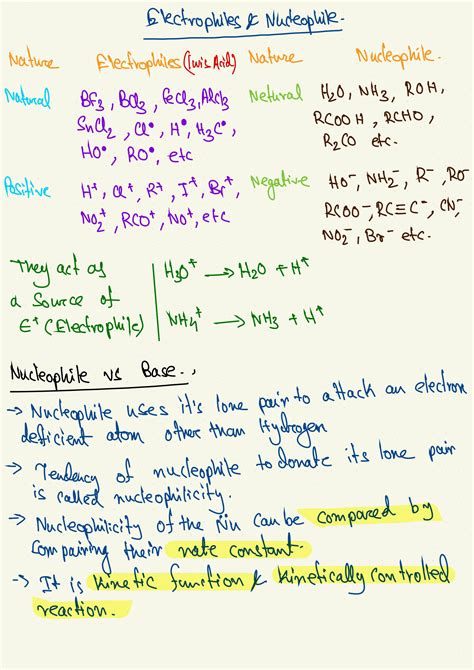 Electrophiles & Nucleophile.
Nature Electrophiles (Lewis Acid) Nature Nucleophile.
Natural BF₃, BCl₃, FeCl₃, AlCl₃ Netural H₂O, NH₃, ROH,
SnCl₂, Cl•, H•, H₃C•, RCOOH, RCHO,
HO•, RO•, etc R₂CO etc.
Positive H⁺, Cl⁺, R⁺, I⁺, Br⁺, Negative HO⁻, NH₂⁻, R⁻, RO⁻
NO₂⁺, RCO⁺, NO⁺, etc RCOO⁻, RC≡C⁻, CN⁻,
NO₂⁻, Br⁻ etc.
They act as H₃O⁺ → H₂O + H⁺
a Source of
E⁺ (Electrophile) NH₄⁺ → NH₃ + H⁺
Nucleophile vs Base..
→ Nucleophile uses it's lone pair to attack an electron
deficient atom other than Hydrogen
→ Tendency of nucleophile to donate its lone pair
is called nucleophilicity.
→ Nucleophilicity of the Nu can be compared by
Comparing their rate constant.
→ It is kinetic function & kinetically controlled
reaction.